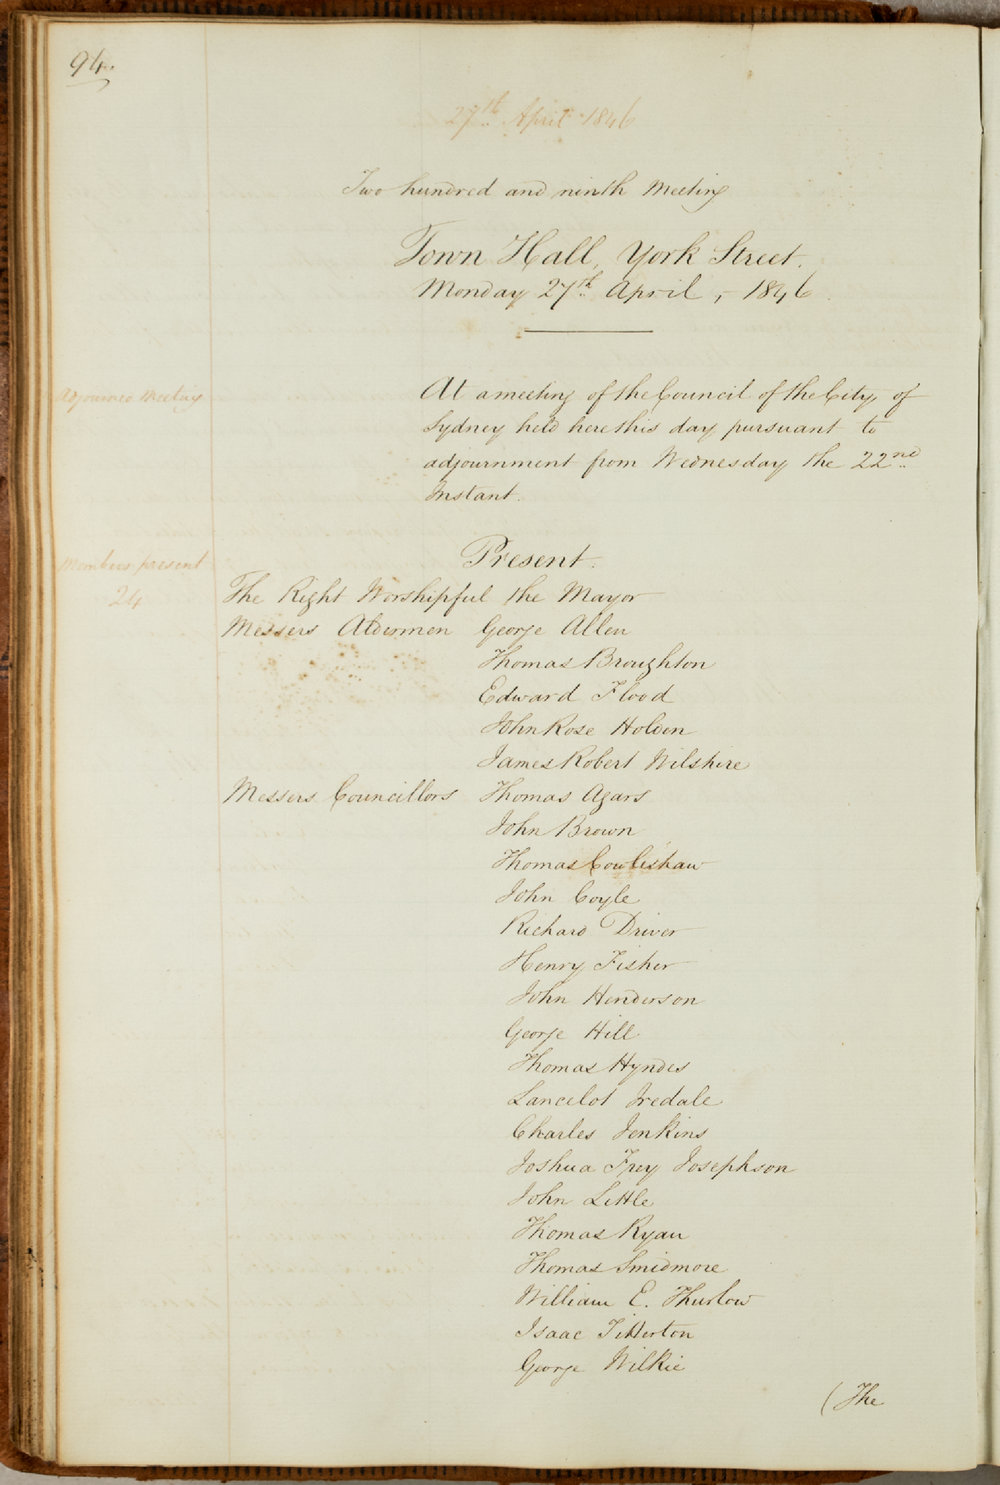 94.
27th April 1846
Two hundred and ninth Meeting
Town Hall, York Street.
Monday 27th April, 1846.
Adjourned Meeting
At a meeting of the Council of the City of
Sydney held here this day pursuant to
adjournment from Wednesday the 22nd
Instant.
Members present
24
Present.
The Right Worshipful the Mayor
Messers Aldermen George Allen
Thomas Broughton
Edward Flood
John Rose Holden
James Robert Wilshire
Messers Councillors Thomas Agars
John Brown
Thomas Cowlishaw
John Coyle
Richard Driver
Henry Fisher
John Henderson
George Hill
Thomas Hyndes
Lancelot Iredale
Charles Jenkins
Joshua Frey Josephson
John Little
Thomas Ryan
Thomas Smidmore
William E. Thurlow
Isaac Titterton
George Wilkie
(The